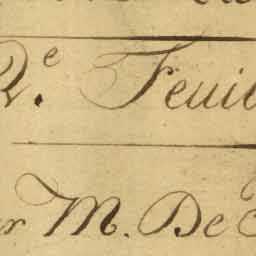 2.e Feuil
r M. De